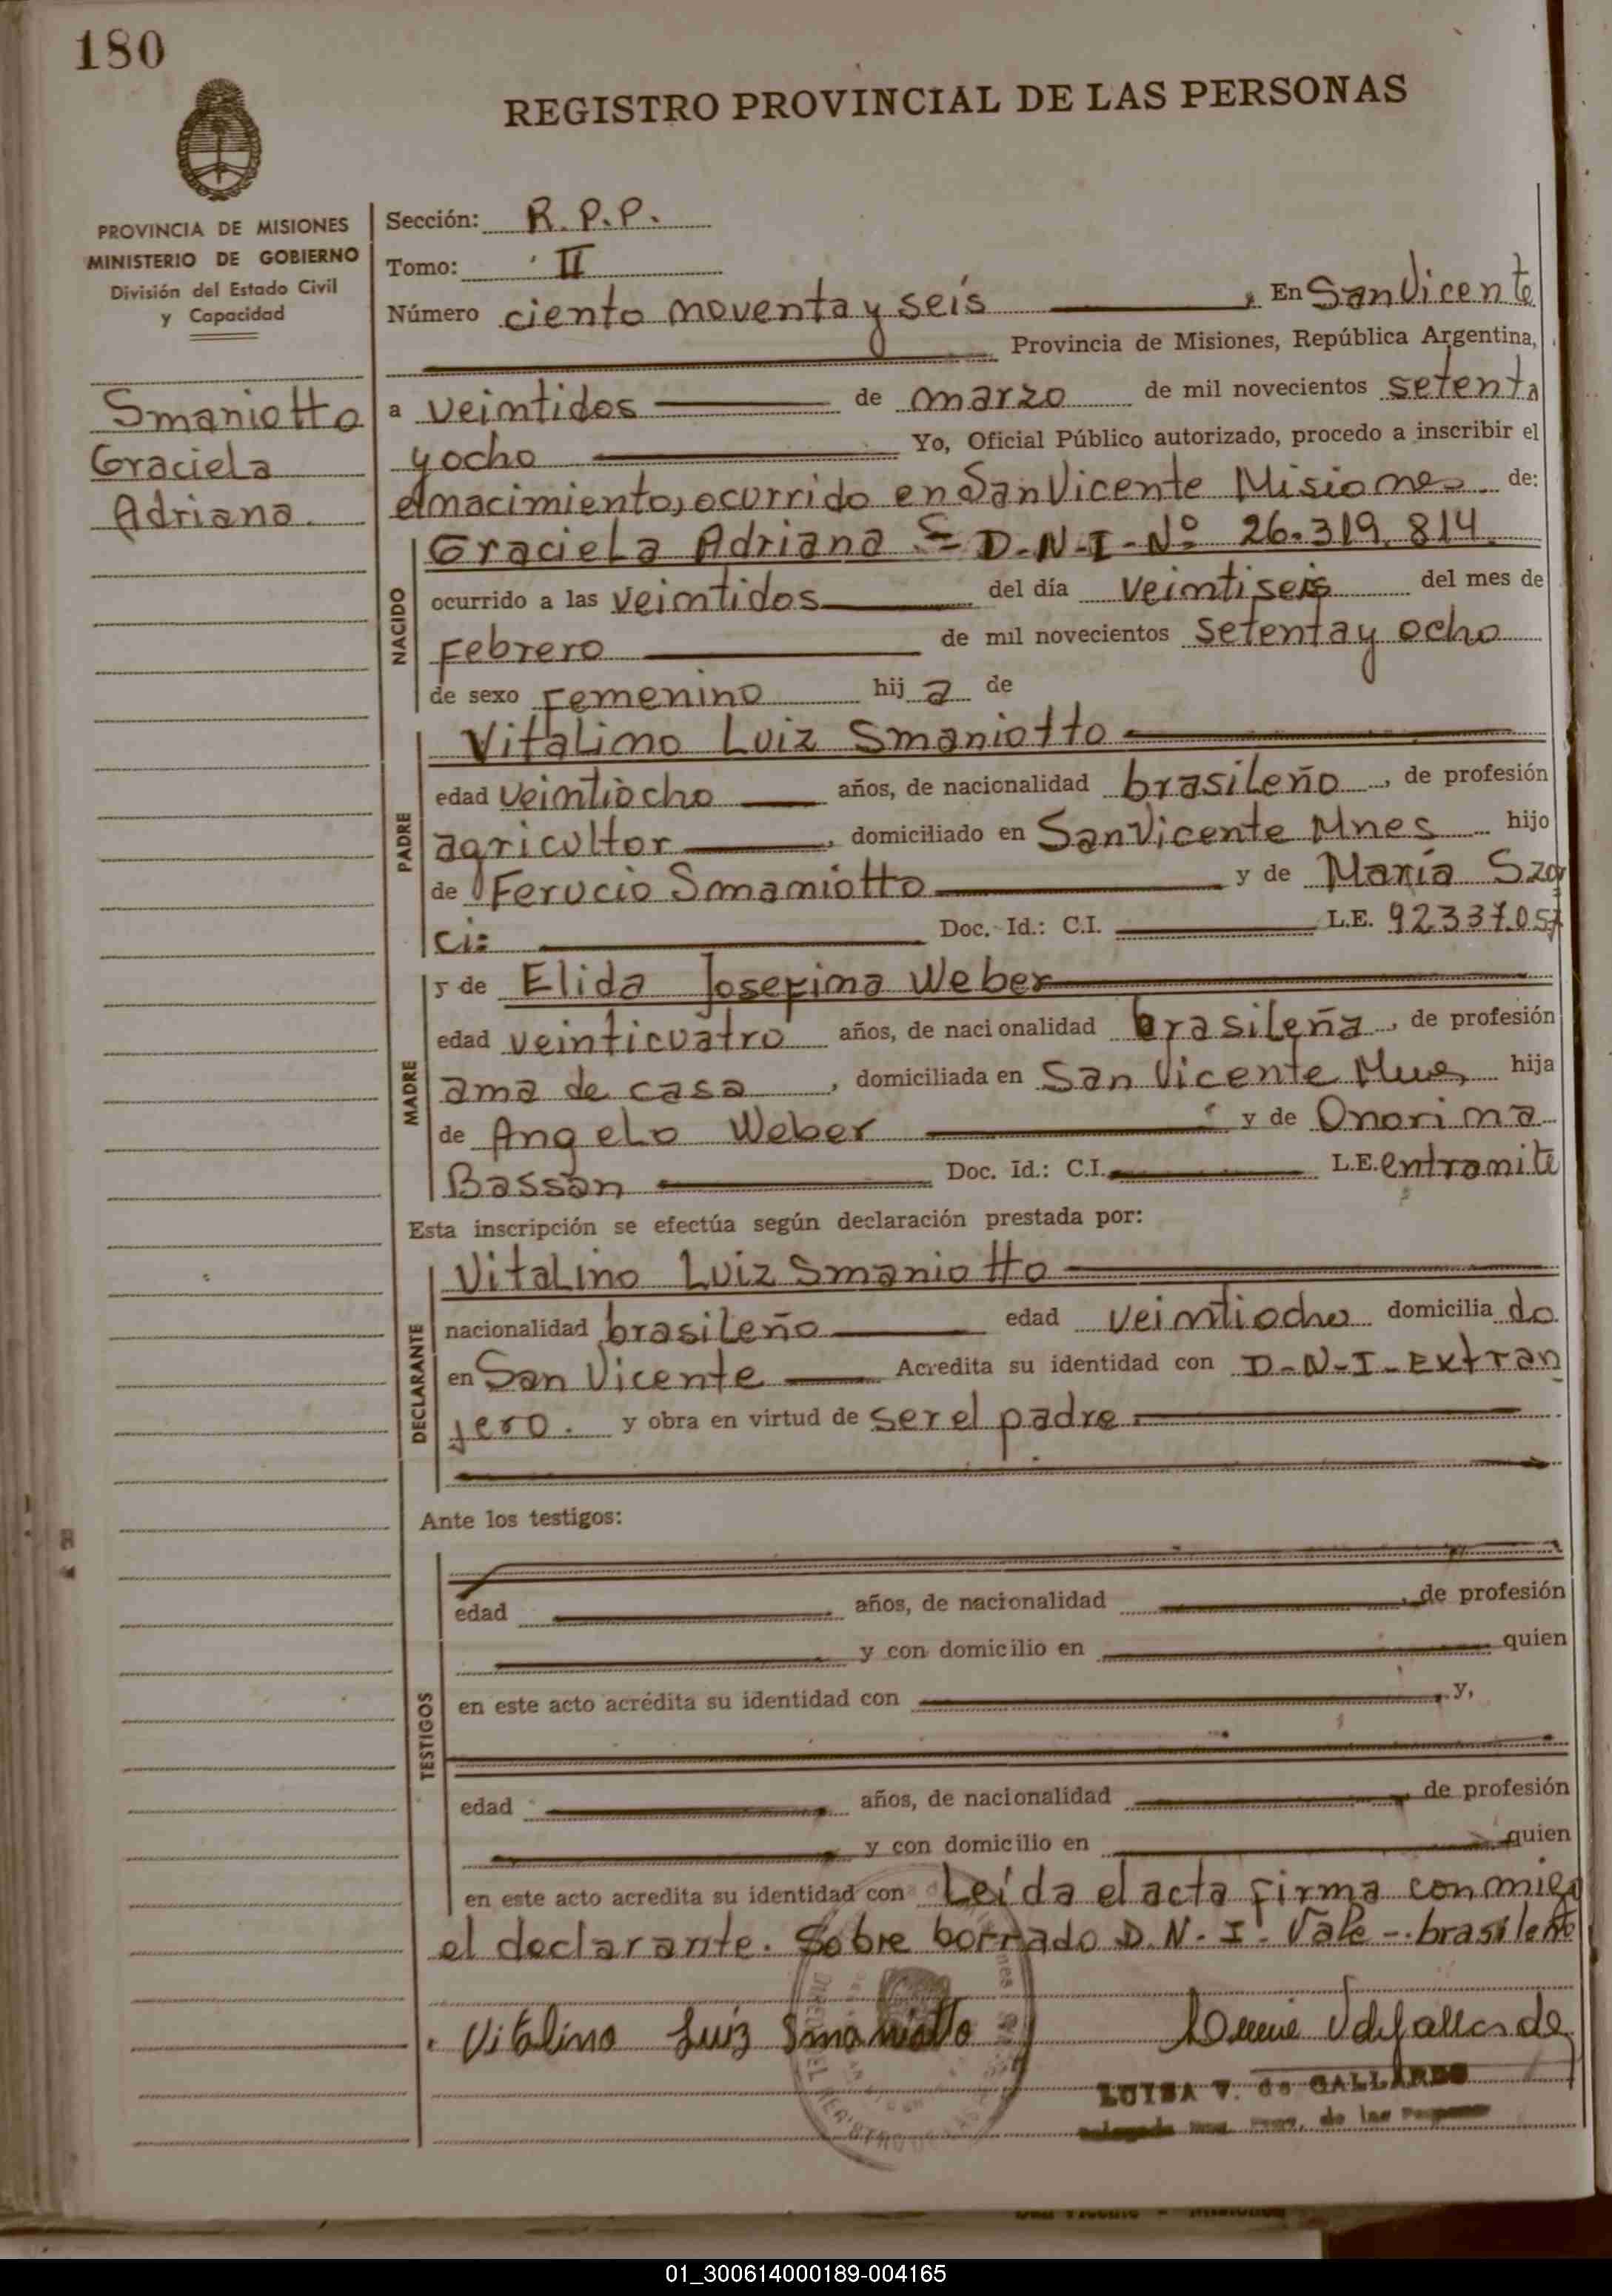 180
REGISTRO PROVINCIAL DE LAS PERSONAS
PROVINCIA DE MISIONES
MINISTERIO DE GOBIERNO
División del Estado Civil
y Capacidad
Smaniotto
Graciela
Adriana.
Sección: R. P. P.
Tomo: II
Número ciento noventa y seis, En San Vicente
Provincia de Misiones, República Argentina,
a veintidos de marzo de mil novecientos setenta
y ocho Yo, Oficial Público autorizado, procedo a inscribir el
el nacimiento, ocurrido en San Vicente Misiones de:
NACIDO
Graciela Adriana = D-N-I-Nº 26.319.814
ocurrido a las veintidos del día veintiseis del mes de
Febrero de mil novecientos setenta y ocho
de sexo Femenino hij a de
PADRE
Vitalino Luiz Smaniotto
edad veintiocho años, de nacionalidad brasileño, de profesión
agricultor, domiciliado en San Vicente Mnes hijo
de Ferucio Smaniotto y de María Szo
ci= Doc. Id.: C.I. L.E. 92337.057
MADRE
y de Elida Josefina Weber
edad veinticuatro años, de nacionalidad brasileña, de profesión
ama de casa, domiciliada en San Vicente Mnes, hija
de Angelo Weber y de Onorina
Bassan Doc. Id.: C.I. L.E. entramite
Esta inscripción se efectúa según declaración prestada por:
DECLARANTE
Vitalino Luiz Smaniotto
nacionalidad brasileño edad veintiocho domicilia do
en San Vicente Acredita su identidad con D-N-I-Extran
jero. y obra en virtud de ser el padre
Ante los testigos:
TESTIGOS
edad años, de nacionalidad, de profesión
y con domicilio en quien
en este acto acredita su identidad con y,
edad años, de nacionalidad, de profesión
y con domicilio en quien
en este acto acredita su identidad con Leída el acta firma conmigo
el declarante. Sobre borrado D.N.I. Vale -. brasileño
Vitalino Luiz Smaniotto
LUISA V. de GALLARDO
01_300614000189-004165